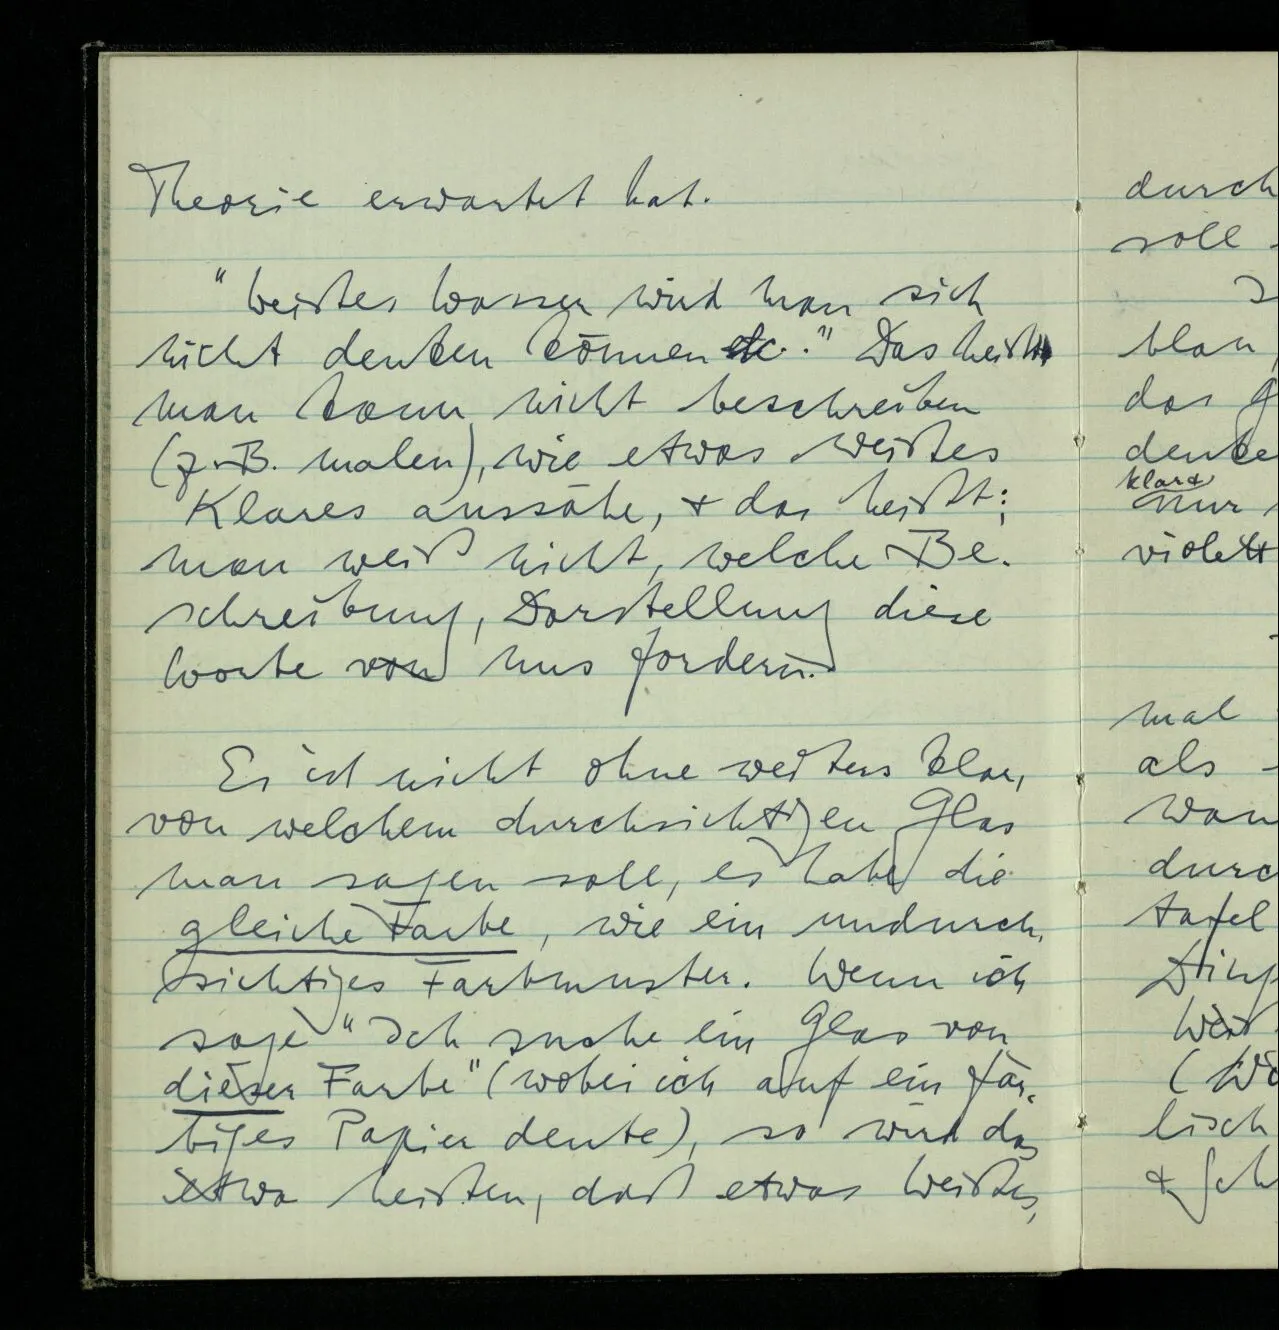 Theorie erwartet hat.
"Weißes Wasser wird man sich
nicht denken können etc." Das heißt
man kann nicht beschreiben
(z.B. malen), wie etwas weißes
Klares aussähe, + das heißt:
man weiß nicht, welche Be-
schreibung, Darstellung diese
Worte von uns fordern.
Es ist nicht ohne weiters klar,
von welchem durchsichtigen Glas
man sagen soll, es habe die
gleiche Farbe, wie ein undurch-
sichtiges Farbmuster. Wenn ich
sage "Ich suche ein Glas von
dieser Farbe" (wobei ich auf ein fär-
biges Papier deute), so wird das
etwa heißen, daß etwas Weißes,
durch
soll
blau,
das G
denke
klare
nur
violett
mal
als
wan
durc
tafel
Ding
Weiß
lisch